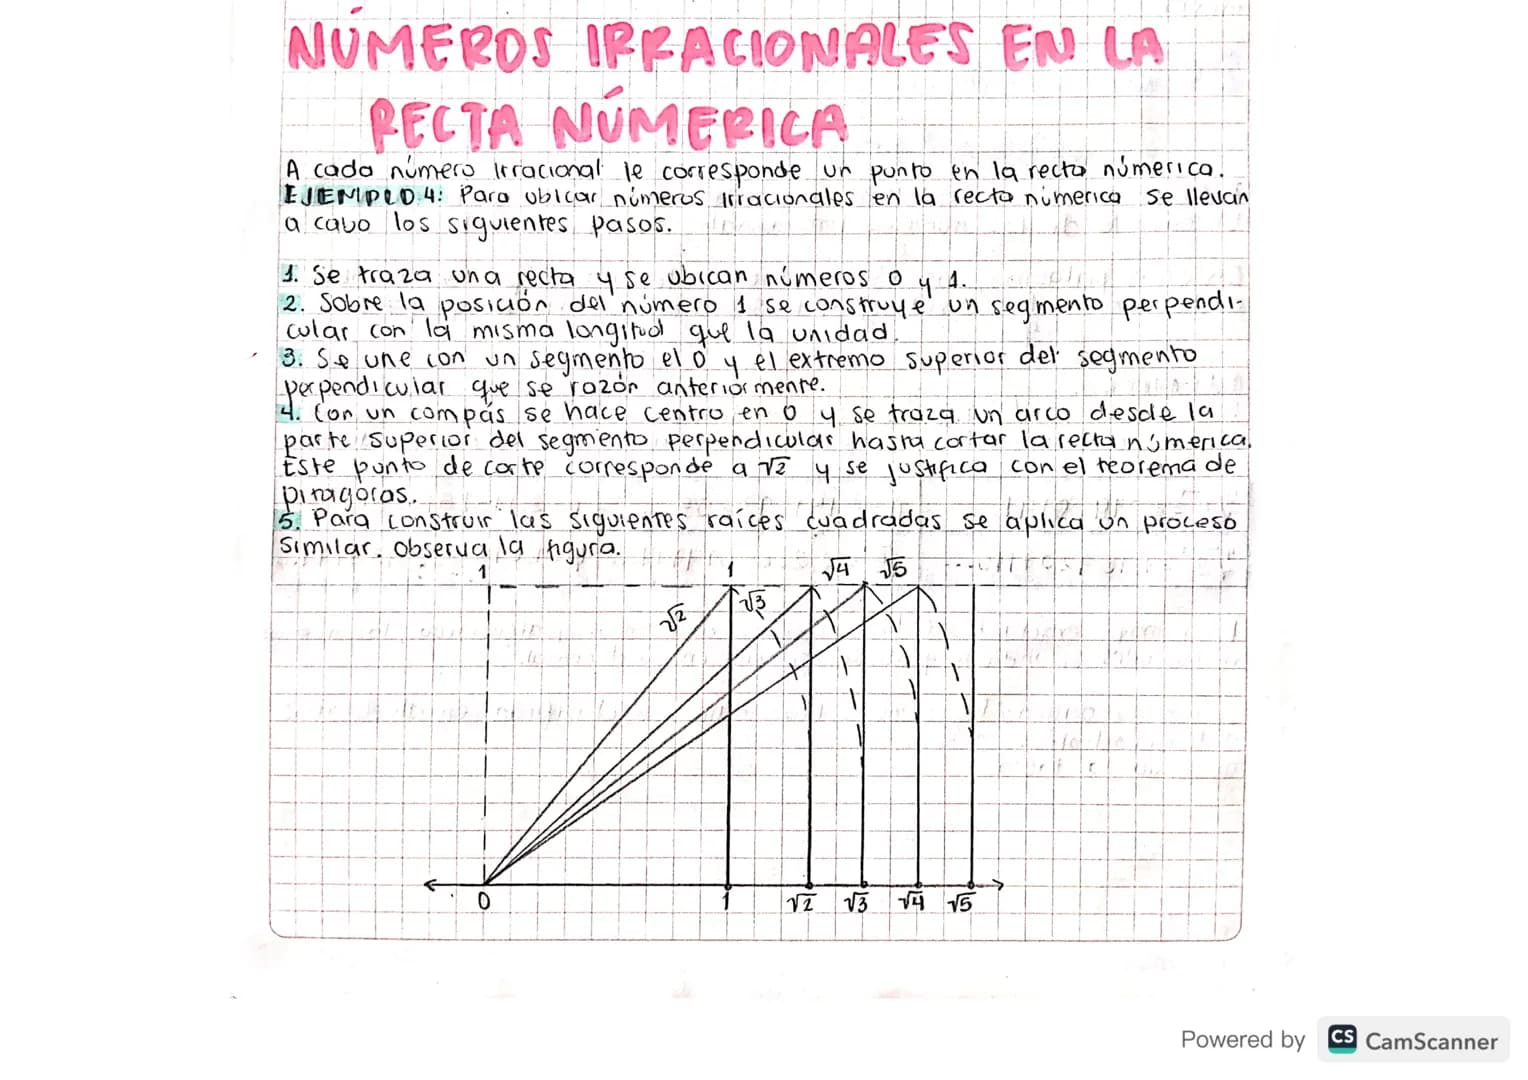 NÚMEROS IRRACIONALES EN LA
RECTA NÚMERICA
A cada número irracional le corresponde un punto en la recta númerica.
EJEMPLO 4: Para ubicar números irracionales en la recta númerica se llevan
a cabo los siguientes pasos.
1. Se traza una recta y se ubican números 0 y 1.
2. Sobre la posición del número 1 se construye un segmento perpendi-
cular con la misma longitud que la unidad.
3. Se une con un segmento el 0 y el extremo superior del segmento
perpendicular que se razón anteriormente.
4. Con un compás se hace centro en 0 y se traza un arco desde la
parte superior del segmento perpendicular hasta cortar la recta númerica.
Este punto de corte corresponde a √2 y se justifica con el teorema de
pitagoras.
5. Para construir las siguientes raíces cuadradas se aplica un proceso
similar. Observa la figura.
1 1 √4 √5
√2 √3
0 1 √2 √3 √4 √5
Powered by CS CamScanner